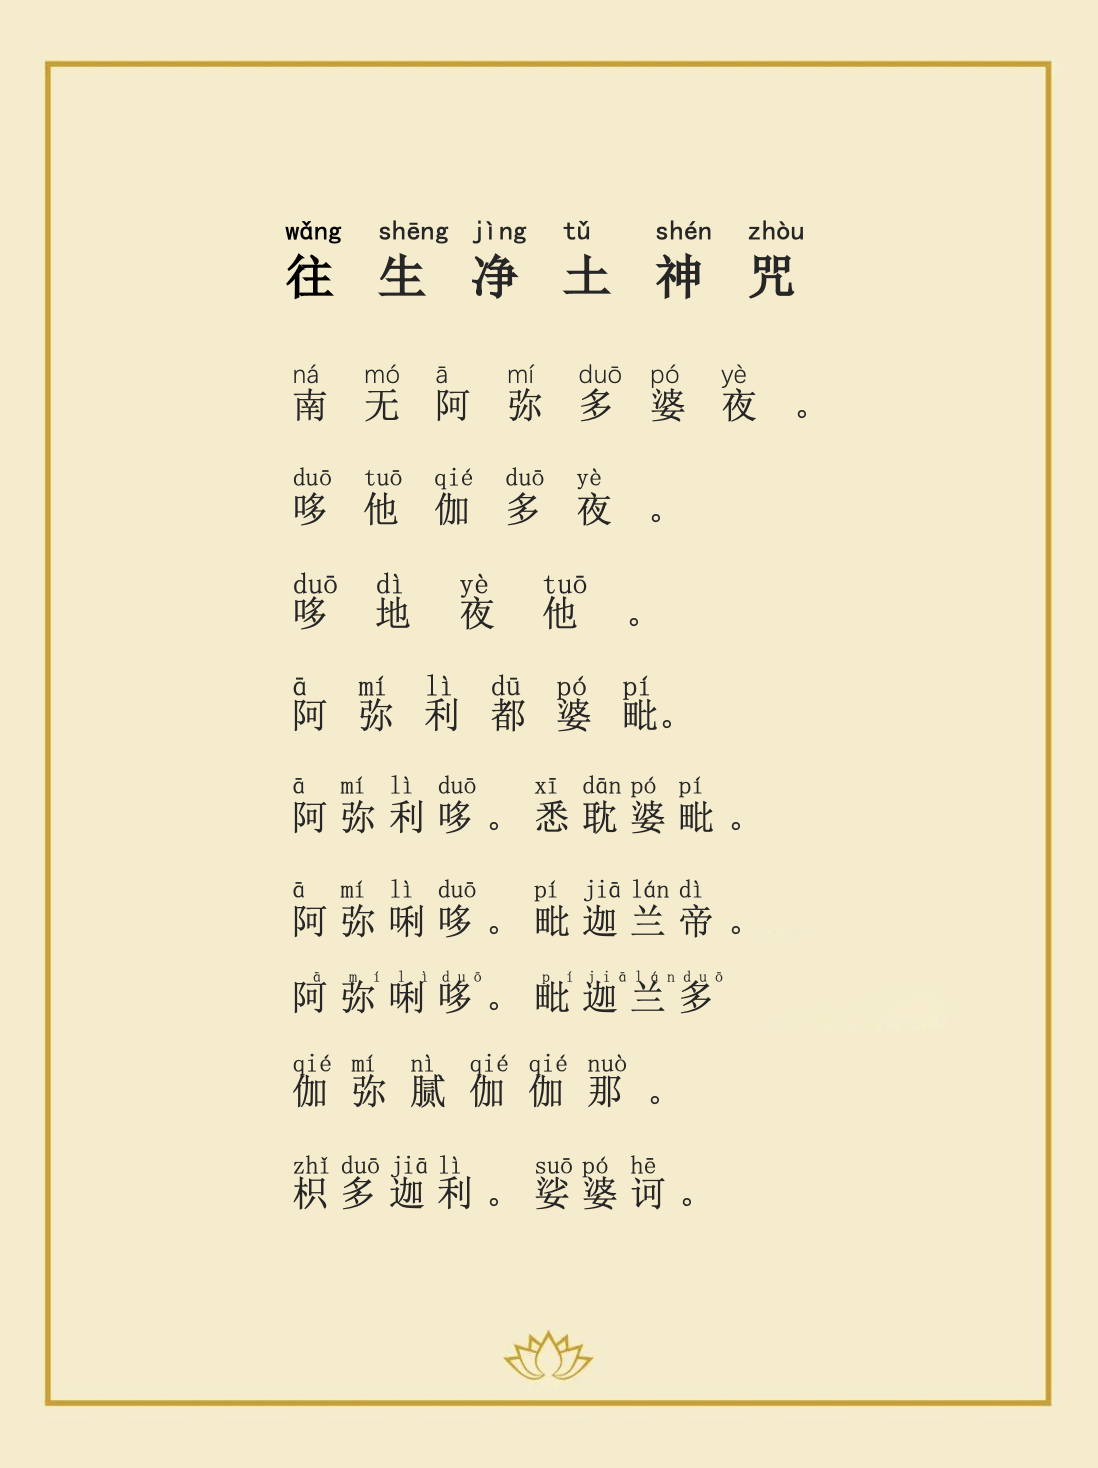 wǎng shēng jìng tǔ shén zhòu
往生净土神咒
ná mó ā mí duō pó yè
南无阿弥多婆夜。
duō tuō qié duō yè
哆他伽多夜。
duō dì yè tuō
哆地夜他。
ā mí lì dū pó pí
阿弥利都婆毗。
ā mí lì duō xī dān pó pí
阿弥利哆。悉耽婆毗。
ā mí lì duō pí jiā lán dì
阿弥唎哆。毗迦兰帝。
ā mí lì duō pí jiā lán duō
阿弥唎哆。毗迦兰多
qié mí nì qié qié nuò
伽弥腻伽伽那。
zhǐ duō jiā lì suō pó hē
枳多迦利。娑婆诃。